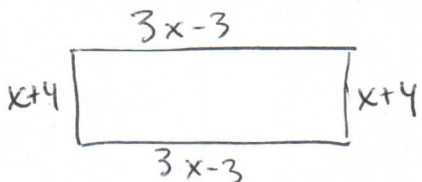 3x-3
x+4
x+4
3x-3